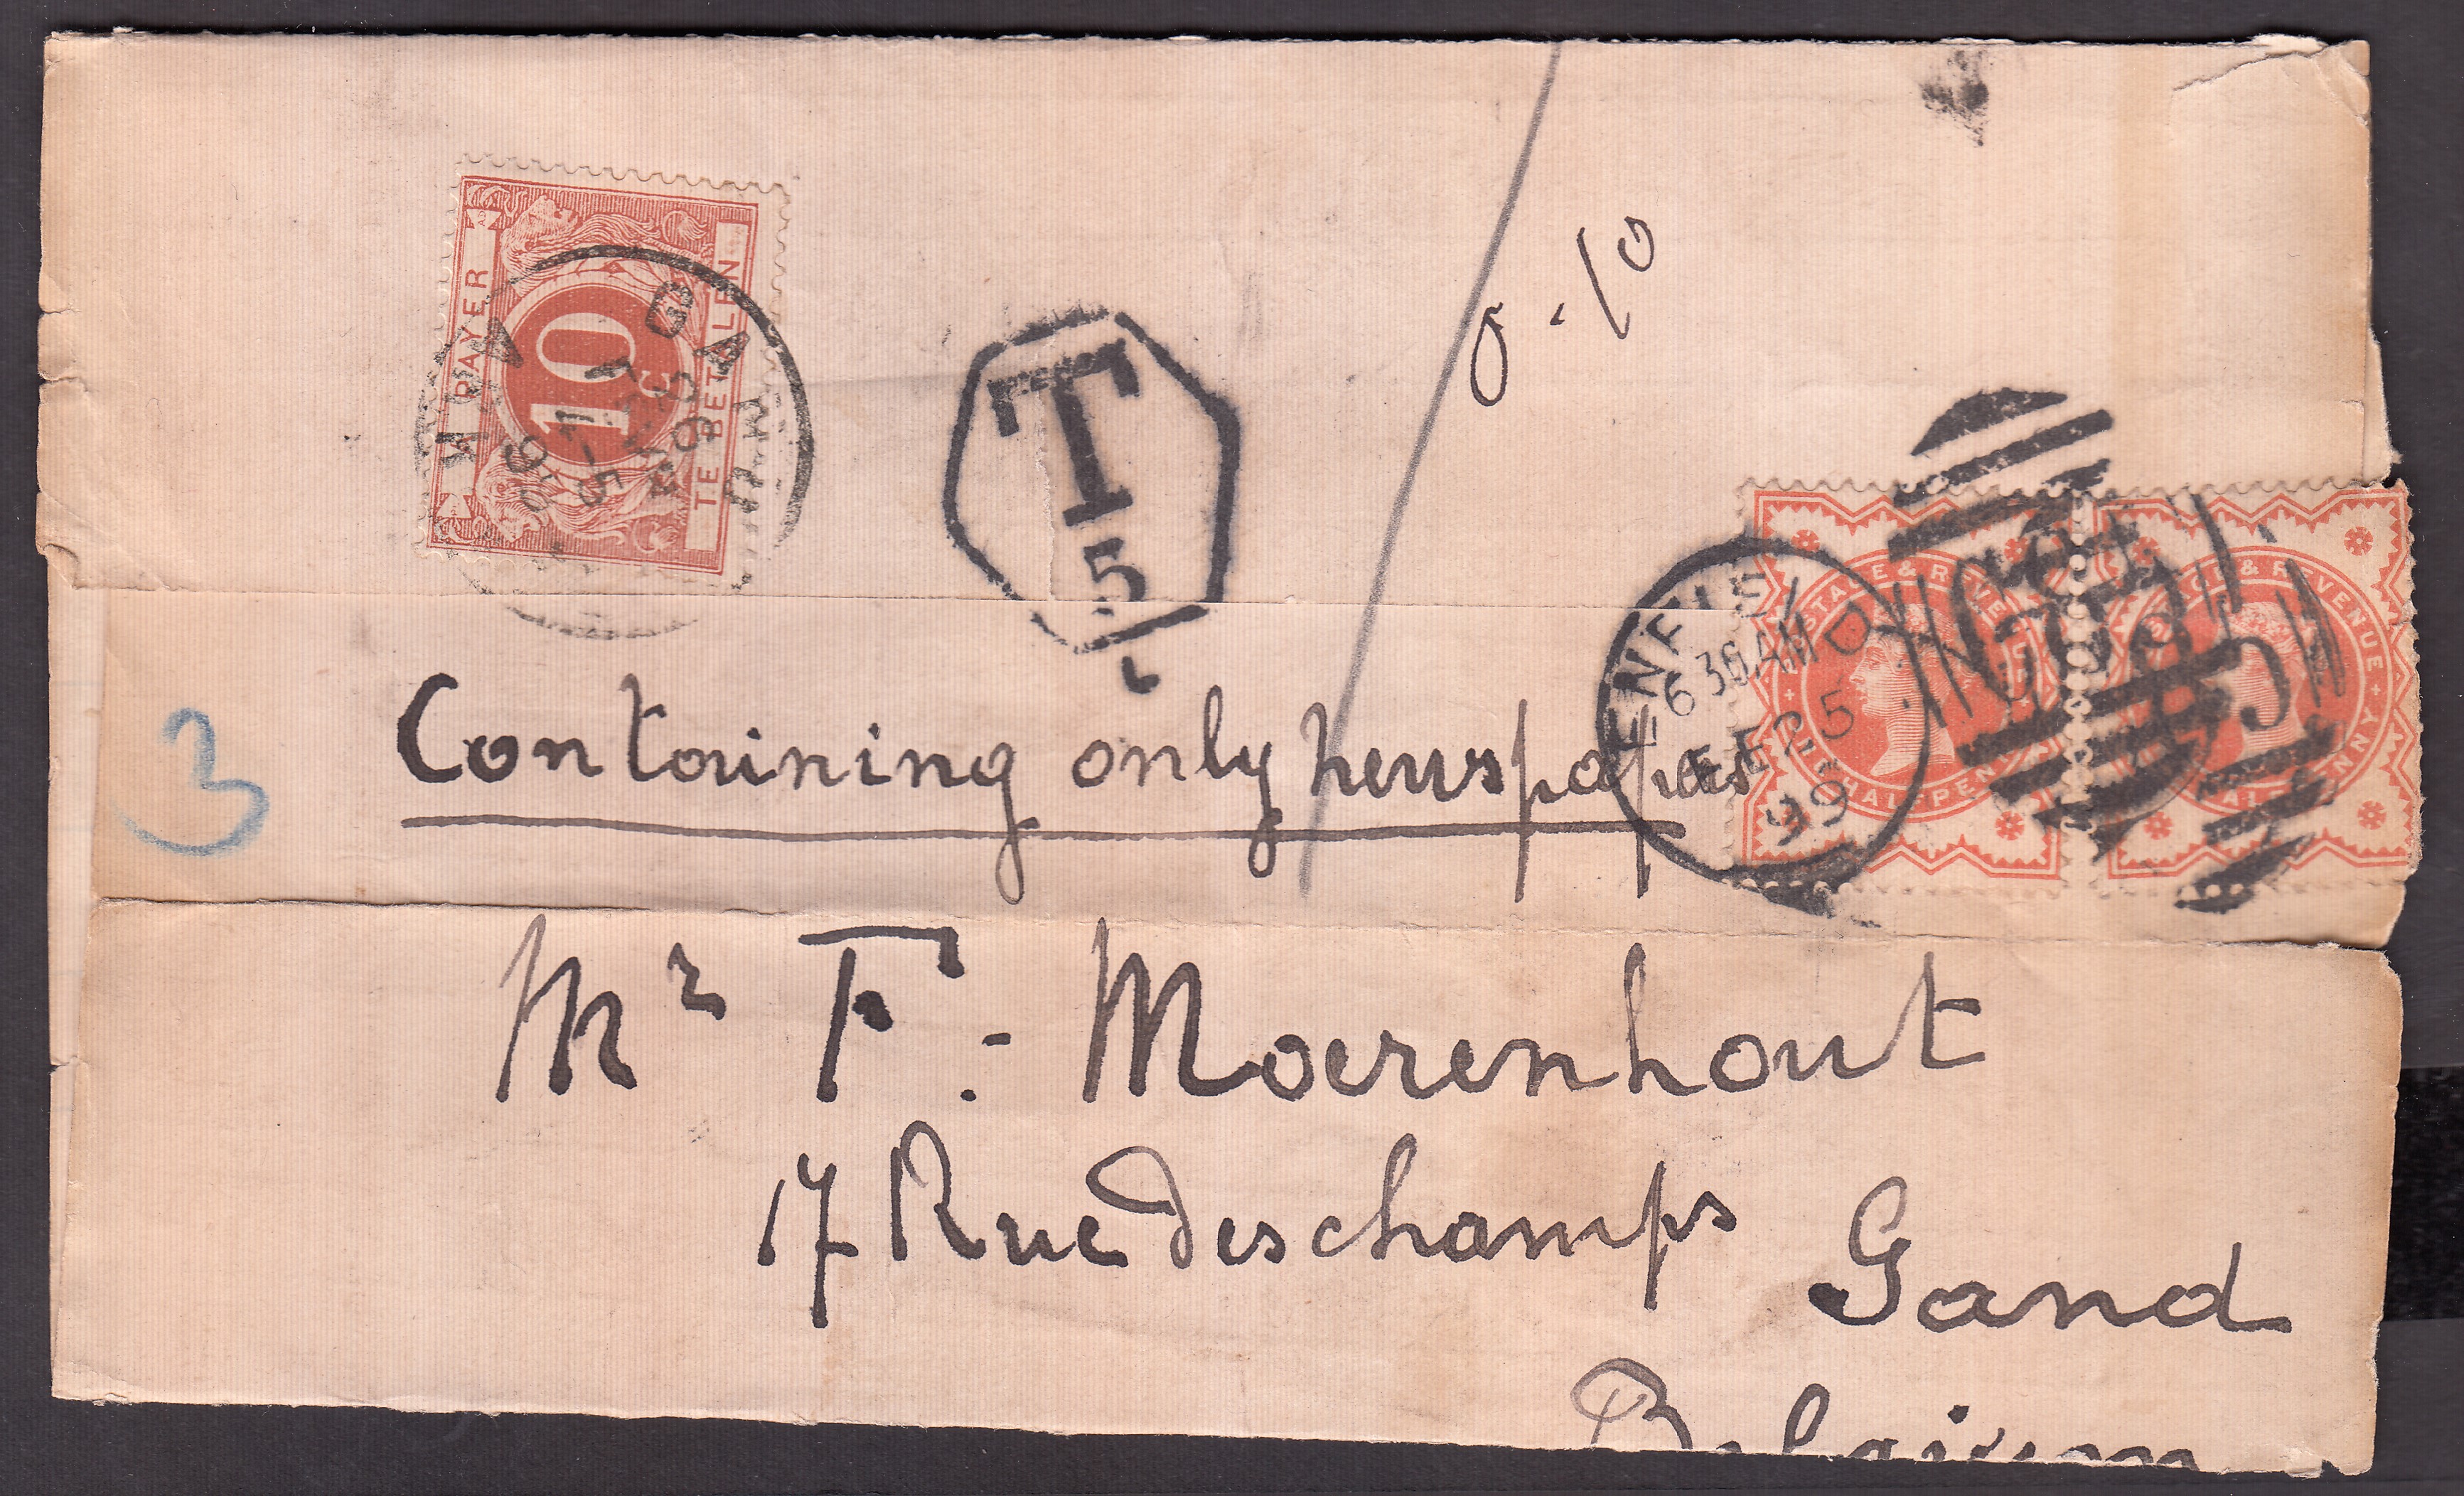 A PAYER
10 c
TE BETALEN
GAND
T
5
0-10
3
Containing only newspapers
6 30 AM
FE 25
99
POSTAGE & REVENUE
HALFPENNY
POSTAGE & REVENUE
HALFPENNY
Mr F. Moerenhout
17 Rue Deschamps
Gand
Belgium